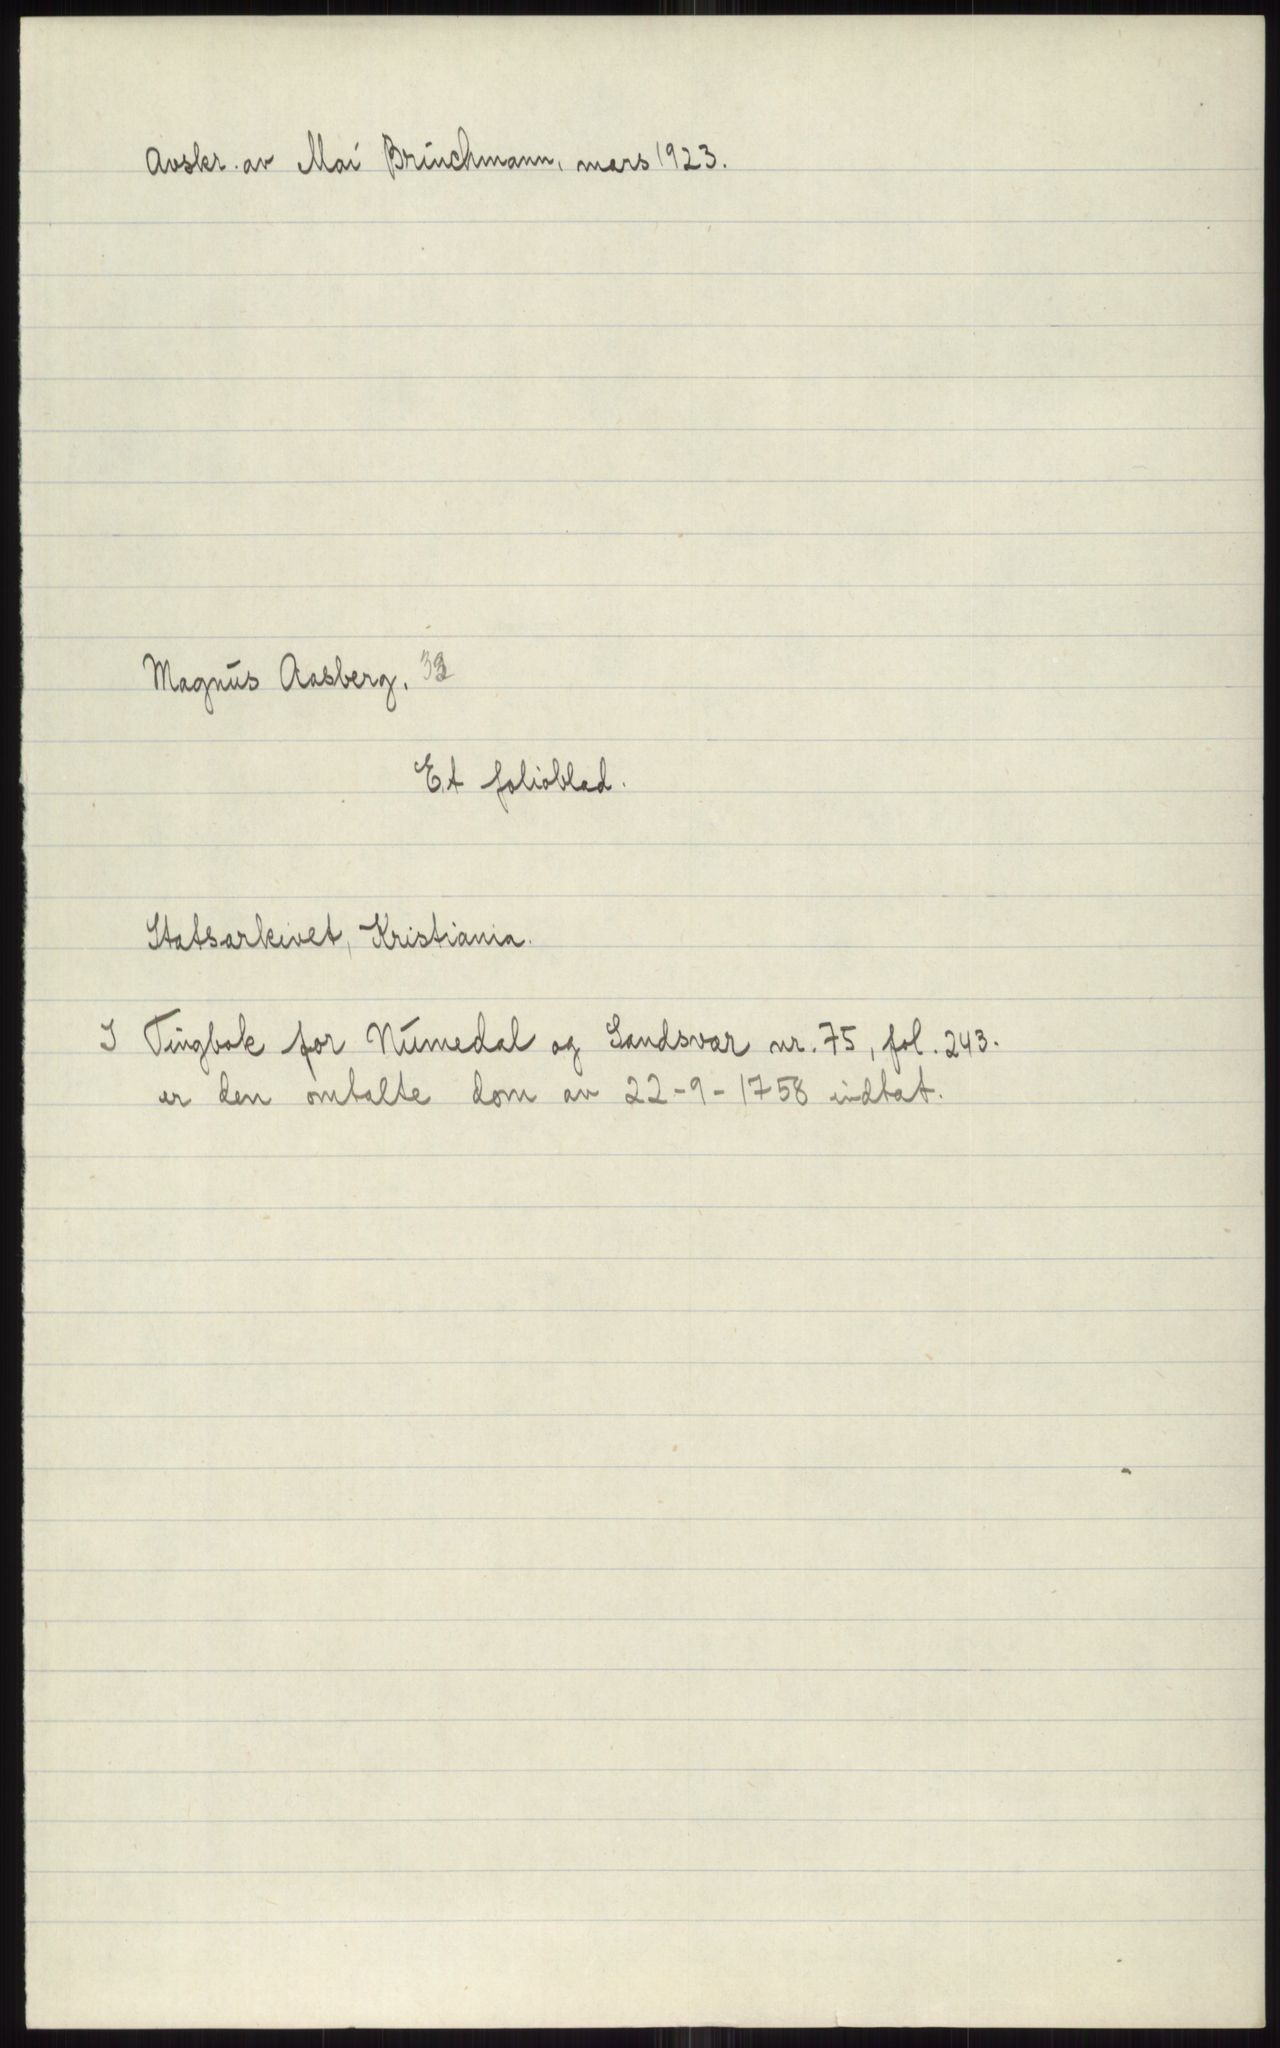 Avskr. av Mai Brünchmann, mars 1923.
Magnus Aasberg.
Et folioblad.
Statsarkivet, Kristiania.
I Tingbok for Numedal og Sandsvær nr. 75, fol. 243.
er den omtalte dom av 22-9-1758 indtat.